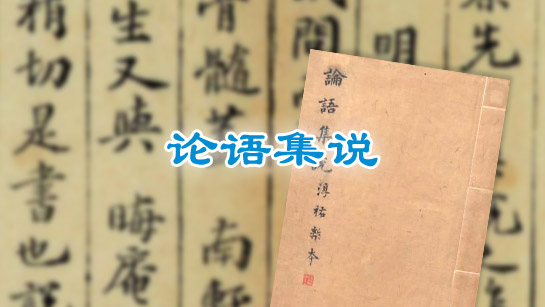 论语集说
論語集說淳祐槧本
明
骨髓 南軒
生又與晦庵
切是書也說